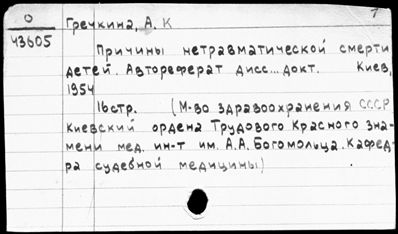 О
43605
Гречкина, А. К
7
Причины нетравматической смерти
детей. Автореферат дисс... докт. Киев,
1954
16 стр. (М-во здравоохранения СССР
Киевский ордена Трудового Красного Зна-
мени мед. ин-т им. А.А. Богомольца. Кафед-
ра судебной медицины)